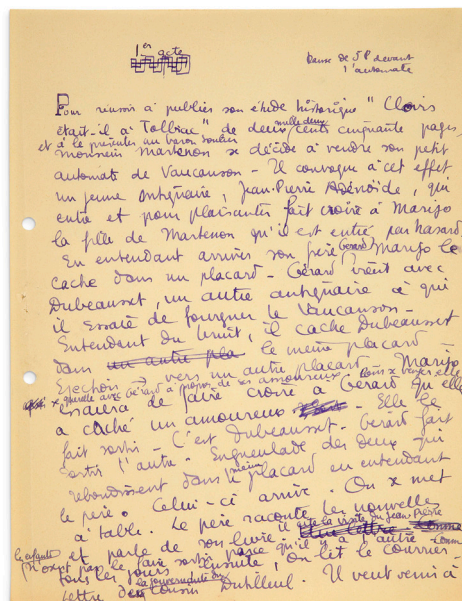 1er acte
Danse de J P devant
l'automate
Pour réussir à publier son étude historique "Clovis
était-il à Tolbiac" de deux cents cinquante pages,
mille deux
et à le présenter au baron
monsieur Martenon se décide à vendre son petit
automate de Vaucanson - Il convoque à cet effet
un jeune antiquaire, Jean-Pierre, qui
entre et pour plaisanter fait croire à Marigo
la fille de Martenon qu'il est entré par hasard.
En entendant arriver son frère Gérard Marigo le
cache dans un placard - Gérard vient avec
Dubeausset, un autre antiquaire à qui
il essaie de fourguer le Vaucanson -
Entendant du bruit, il cache Dubeausset
dans un autre pla le même placard
vers un autre placard - Marigo
querelle avec Gérard à propos de ses amoureux
essaiera de faire croire à Gérard qu'elle
a caché un amoureux - Elle le
fait sortir - C'est Dubeausset - Gérard fait
sortir l'autre. Engueulade des deux qui
rebondissent dans le même placard en entendant
le père. Celui-ci arrive. On se met
à table. Le père raconte les nouvelles
et parle de son livre. il la visite du jean-Pierre
tous les jours ensuite, On lit le courrier -
lettre du cousin Dutilleul. Il veut venir à